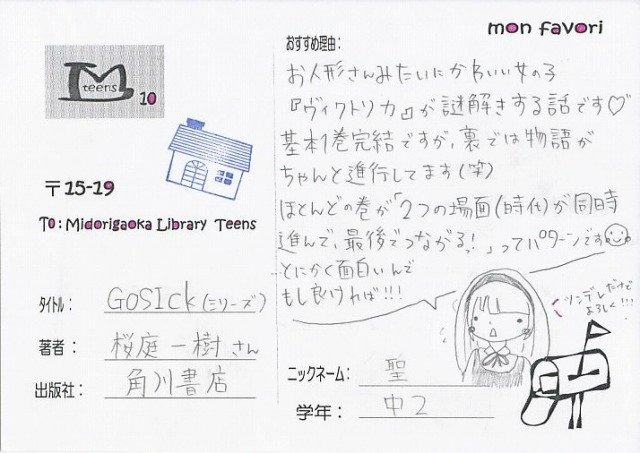 mon favori
M teens 10
〒15-19
To: Midorigaoka Library Teens
タイトル: GOSICK(シリーズ)
著者: 桜庭一樹さん
出版社: 角川書店
おすすめ理由:
お人形さんみたいにかわいい女の子
『ヴィクトリカ』が謎解きする話です♡
基本1巻完結ですが、裏では物語が
ちゃんと進行してます(笑)
ほとんどの巻が「2つの場面(時代)が同時
進んで、最後でつながるっ!」ってパターンです
とにかく面白いんで
もし良ければ!!!
ツンデレだけど
よろしく!!!
ニックネーム: 聖
学年: 中2